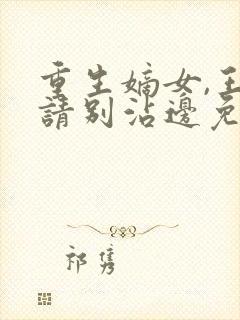 重生嫡女,王
請別沾邊免
祁隽